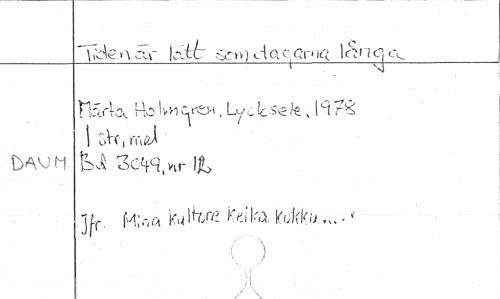 Tiden är lätt som dagarna långa
Märta Holmgren, Lycksele, 1978
1 str, mel
DAUM Bd 3049, nr 12
Jfr. Mina kultore keika kukku.....